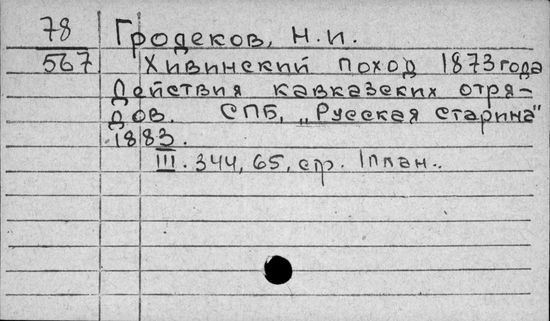 78 Гродеков, Н.И.
567 Хивинский поход 1873 года
Действия кавказских отря-
дов. СПБ, „Русская старина"
1883.
III. 344, 65, стр. 1 план.